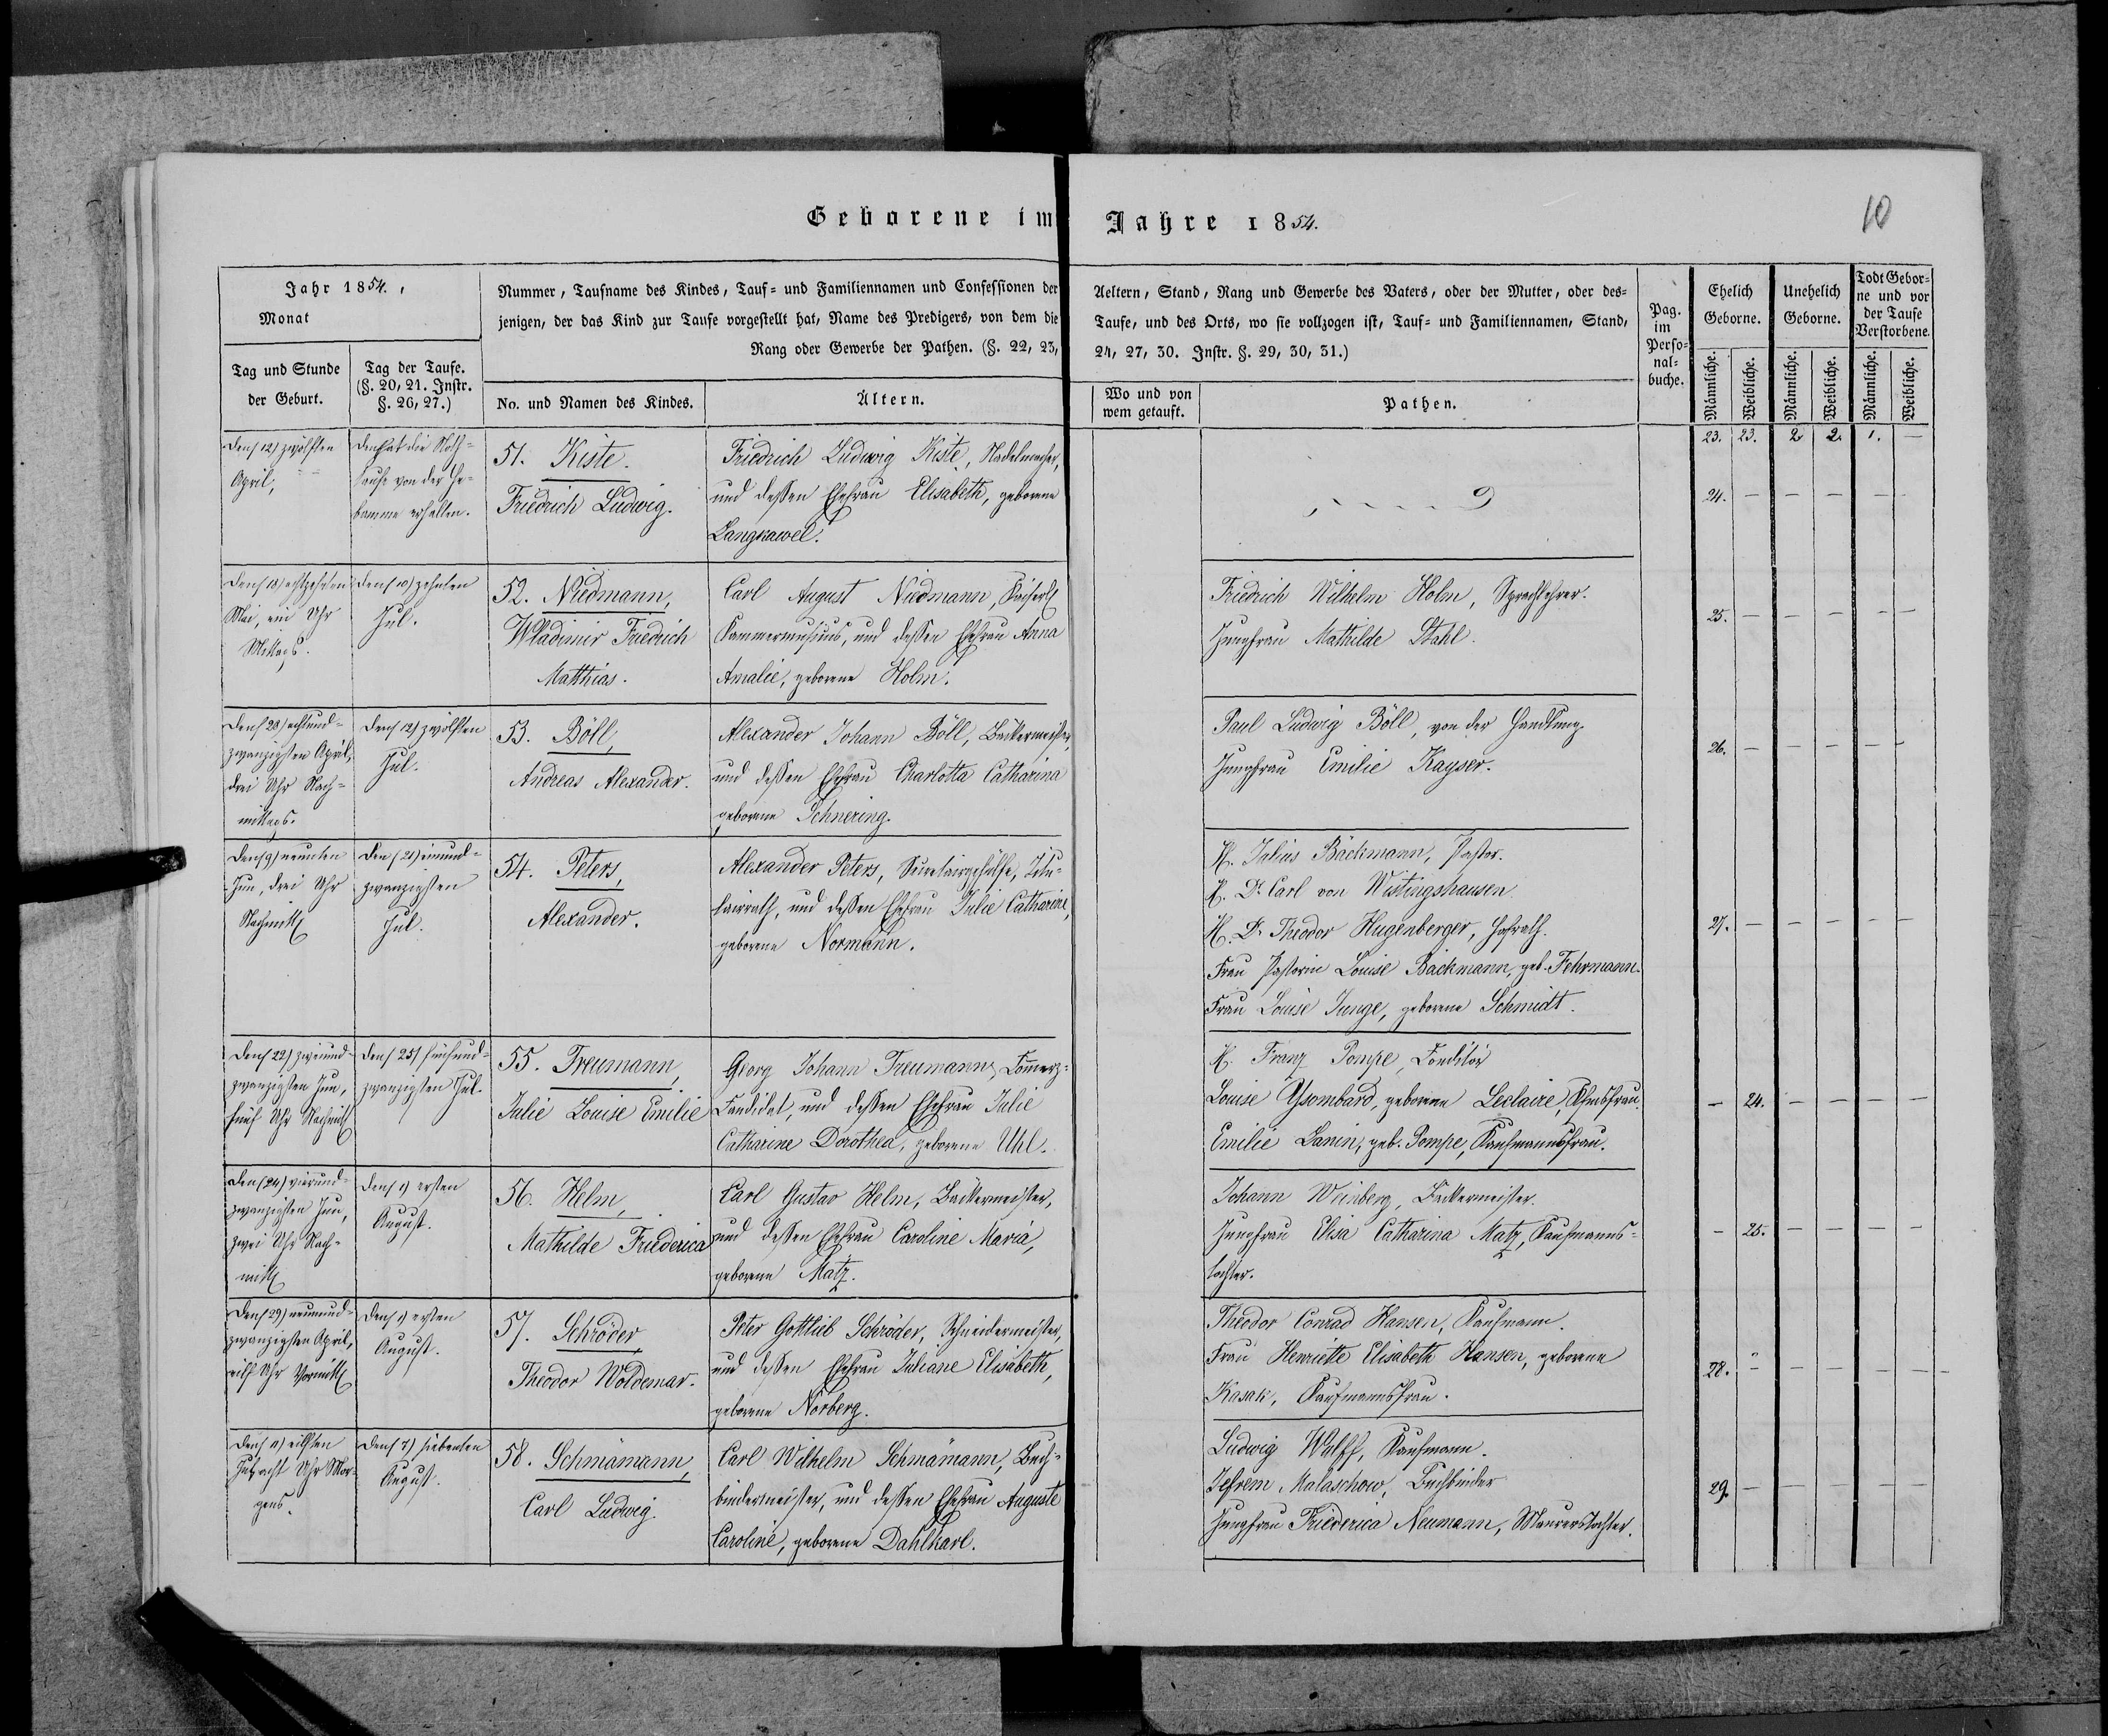 Geborene im Jahre 1854.
10
Jahr 1854.
Monat
Tag und Stunde
der Geburt.
Tag der Taufe.
(§. 20, 21. Instr.
§. 26, 27.)
Nummer, Taufname des Kindes, Tauf- und Familiennamen und Confessionen der
jenigen, der das Kind zur Taufe vorgestellt hat, Name des Predigers, von dem die
Rang oder Gewerbe der Pathen. (§. 22, 23,
No. und Namen des Kindes.
Ältern.
Aeltern, Stand, Rang und Gewerbe des Vaters, oder der Mutter, oder des-
Taufe, und des Orts, wo sie vollzogen ist, Tauf- und Familiennamen, Stand,
24, 27, 30. Instr. §. 29, 30, 31.)
Wo und von
wem getauft.
Pathen.
Pag.
im
Perso-
nal-
buche.
Ehelich
Geborne.
Unehelich
Geborne.
Todt Gebor-
ne und vor
der Taufe
Verstorbene.
Männliche.
Weibliche.
Männliche.
Weibliche.
Männliche.
Weibliche.
23. 23. 2. 2. 1. —
Den (12) zwölften
April,
hat die Noth-
taufe von der He-
bamme erhalten.
51. Kiste.
Friedrich Ludwig.
Friedrich Ludwig Kiste, Nadelmacher,
und dessen Ehefrau Elisabeth, geborene
Langkawel.
24. — — — — —
Den (18) achtzehnten
Mai, ein Uhr
Mittags.
Den (10) zehnten
Jul.
52. Niedmann,
Wladimir Friedrich
Matthias.
Carl August Niedmann, Kaiserl
Kammermusicus, und dessen Ehefrau Anna
Amalie, geborene Holm.
Friedrich Wilhelm Holm, Sprachlehrer.
Jungfrau Mathilde Stahl.
25. — — — — —
Den (28) achtund-
zwanzigsten April,
drei Uhr Nach-
mittags.
Den (12) zwölften
Jul.
53. Böll,
Andreas Alexander.
Alexander Johann Böll, Bäckermeister,
und dessen Ehefrau Charlotta Catharina
geborene Schnering.
Paul Ludwig Böll, von der Handlung.
Jungfrau Emilie Kayser.
26. — — — — —
Den (9) neunten
Jun, drei Uhr
Nachmitt
Den (21) einund-
zwanzigsten
Jul.
54. Peters,
Alexander.
Alexander Peters, Secretairgehülfe, Titu-
lairrath, und dessen Ehefrau Julie Catharine,
geborene Normann.
H. Julius Bäckmann, Pastor.
H. Dr. Carl von Wistingshausen
H. Dr. Theodor Hugenberger, Hofrath.
Frau Pastorin Louise Bäckmann, geb. Fehrmann.
Frau Louise Junge, geborene Schmidt.
27. — — — — —
Den (22) zweiund-
zwanzigsten Jun,
fünf Uhr Nachmitt
Den (25) fünfund-
zwanzigsten Jul.
55. Treumann,
Julie Louise Emilie
Georg Johann Treumann, Commerz-
Candidat, und dessen Ehefrau Julie
Catharine Dorothea, geborene Uhl.
H. Franz Pompe, Conditor
Louise Ysombard, geborene Leclaire,
Emilie Lanin, geb. Pompe, Kaufmannsfrau.
— 24. — — — —
Den (24) vierund-
zwanzigsten Jun,
zwei Uhr Nach-
mitt
Den (1) ersten
August.
56. Helm,
Mathilde Friederica
Carl Gustav Helm, Bäckermeister,
und dessen Ehefrau Caroline Maria,
geborene Matz.
Johann Weinberg, Bäckermeister.
Jungfrau Elisa Catharina Matz, Kaufmanns-
tochter.
— 25. — — — —
Den (29) neunund-
zwanzigsten April,
eilf Uhr Vormitt
Den (1) ersten
August.
57. Schröder,
Theodor Woldemar.
Peter Gottlieb Schröder, Schneidermeister,
und dessen Ehefrau Juliane Elisabeth,
geborene Norberg.
Theodor Conrad Hansen, Kaufmann.
Frau Henriette Elisabeth Hansen, geborene
Kasak, Kaufmannsfrau.
28. — — — — —
Den (11) eilften
Jul, acht Uhr Mor-
gens.
Den (7) siebenten
August.
58. Schmämann,
Carl Ludwig.
Carl Wilhelm Schmämann, Buch-
bindermeister, und dessen Ehefrau Auguste
Caroline, geborene Dahlkarl.
Ludwig Wolff, Kaufmann.
Jefrem Malaschow, Buchbinder
Jungfrau Friederica Neumann, Maurerstochter.
29. — — — — —